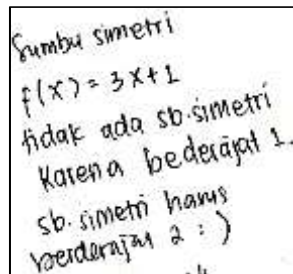 Sumbu simetri
f(x) = 3x+1
tidak ada sb.simetri
Karena bederajat 1.
sb. simetri harus
berderajat 2 : )